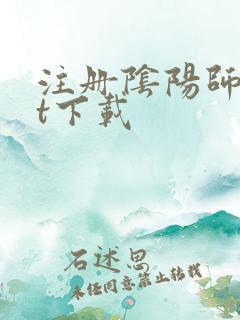 注册陰陽師
t下載
石述思
未經同意禁止轉載